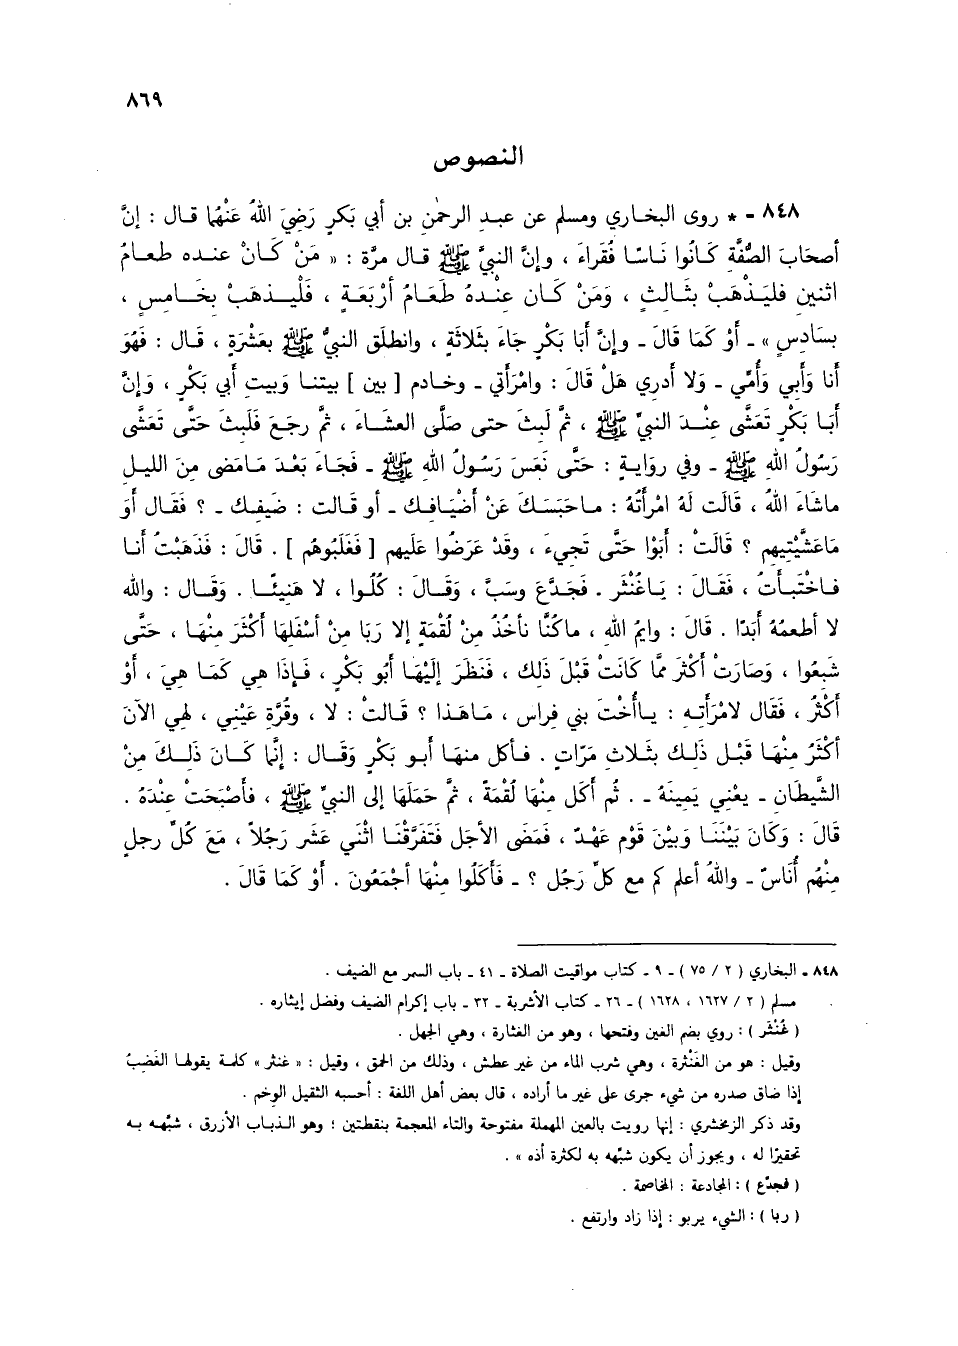 ٨٦٩
النصوص
٨٤٨ - * روى البخاري ومسلم عن عبد الرحمٰن بن أبي بَكرٍ رَضِيَ اللهُ عَنْهُما قال : إنَّ
أصحَابَ الصُّفَّةِ كَانُوا نَاسًا فُقَراءَ ، وإنَّ النبيَّ ﷺ قال مرَّة : « مَنْ كَانَ عنده طعامُ
اثنينِ فليَذْهَبْ بثالثٍ ، وَمَنْ كان عِنْدهُ طَعَامُ أَرْبَعَةٍ ، فَلْيذهَبْ بخَامسٍ ،
بسَادِسٍ » - أَوْ كمَا قَالَ - وإنَّ أبَا بَكْرٍ جَاءَ بثَلاثَةٍ ، وانطلَق النبيُّ ﷺ بعَشْرَةٍ ، قَال : فَهُوَ
أنا وَأَبي وَأُمِّي - وَلا أدرِي هَلْ قَالَ : وامْرَأتي - وخَادم [ بين ] بيتنا وَبيتِ أبي بَكْرٍ ، وَإنَّ
أبَا بَكْرٍ تَعَشَّى عِنْدَ النبيِّ ﷺ ، ثمَّ لَبِثَ حتى صَلَّى العشَاءَ ، ثمَّ رجَعَ فَلَبِثَ حتَّى تَعَشَّى
رَسُولُ اللهِ ﷺ - وفي رِوَايةٍ : حتَّى نَعَسَ رَسُولُ اللهِ ﷺ - فَجَاءَ بَعْدَ مَامَضى مِنَ الليلِ
ماشَاءَ اللهُ ، قَالَت لَهُ امْرأتُهُ : مـاحَبَسَكَ عَنْ أضْيَافِك - أو قَالت : ضَيفِك - ؟ فَقَال أَوَ
مَاعَشَّيْتِيهم ؟ قَالَتْ : أبَوْا حَتَّى تَجيءَ ، وقَدْ عَرَضُوا عَلَيهم [ فَغَلَبُوهُم ] . قَالَ : فَذَهَبْتُ أنَا
فاخْتَبَأتُ ، فَقَالَ : يَاغُنْثَر . فَجَدَّعَ وسَبَّ ، وَقَالَ : كُلُوا ، لا هَنِيئًا . وَقَال : والله
لا أطعمُهُ أبَدًا . قَالَ : وايمُ اللهِ ، ماكُنَّا نأخُذُ مِنْ لُقْمَةٍ إلا رَبَا مِنْ أسْفَلِهَا أكْثَرَ مِنْهَا ، حَتَّى
شَبَعُوا ، وَصَارَتْ أكْثَر ممَّا كَانَتْ قَبْلَ ذَلِكَ ، فَنَظَرَ إلَيْهَا أبُو بَكْرٍ ، فَإذَا هِي كَمَا هِيَ ، أَوْ
أكْثَرُ ، فَقَال لامْرَأتِهِ : ياأُخْتَ بني فِراس ، مَاهَذا ؟ قَالتْ : لا ، وقُرَّةِ عَيْني ، لهي الآنَ
أكْثَرُ مِنْهَا قَبْل ذَلِكَ بثَلاثِ مَرَّات . فأكل منهَا أبو بَكْرٍ وَقَال : إنَّمَا كَانَ ذَلِكَ مِنَ
الشَّيْطَان - يعْني يَمِينَهُ - . ثُم أكَل مِنْهَا لُقْمَةً ، ثمَّ حَمَلَهَا إلى النبيِّ ﷺ ، فَأصْبَحَتْ عِنْدَهُ .
قَالَ : وَكَان بَيْنَنَا وبيْنَ قَوْمٍ عَهْدٌ ، فَمَضَى الأجَل فَتَفَرَّقْنَا اثْنَي عَشَر رَجُلاً ، مَعَ كُلِّ رجلٍ
مِنْهُم أُنَاسٌ - واللهُ أعلم كم مع كلِّ رَجُل ؟ - فَأَكَلُوا مِنْهَا أجْمَعُونَ . أوْ كمَا قَالَ .
٨٤٨ - البخاري ( ٢ / ٧٥ ) - ٩ - كتاب مواقيت الصلاة - ٤١ - باب السمر مع الضيف .
مسلم ( ٢ / ١٦٢٧ ، ١٦٢٨ ) - ٣٦ - كتاب الأشربة - ٣٢ - باب إكرام الضيف وفضل إيثاره .
( غُنْثَر ) : روي بضم الغين وفتحها ، وهو من الغثارة ، وهي الجهل .
وقيل : هو من الغَنْثرة ، وهي شرب الماء من غير عطش ، وذلك من الحمق ، وقيل : « غنثر » كلمة يقولها الغَضِبُ
إذا ضاق صدره من شيء جرى على غير ما أراده ، قال بعض أهل اللغة : أحسبه الثقيل الوخم .
وقد ذكر الزمخشري : إنها رويت بالعين المهملة مفتوحة والتاء المعجمة بنقطتين ؛ وهو الذباب الأزرق ، شبَّهه به
تحقيرًا له ، ويجوز أن يكون شبّهه به لكثرة أذه » .
( فجدّع ) : المجادعة : المخاصمة .
( ربا ) : الشيء يربو : إذا زاد وارتفع .